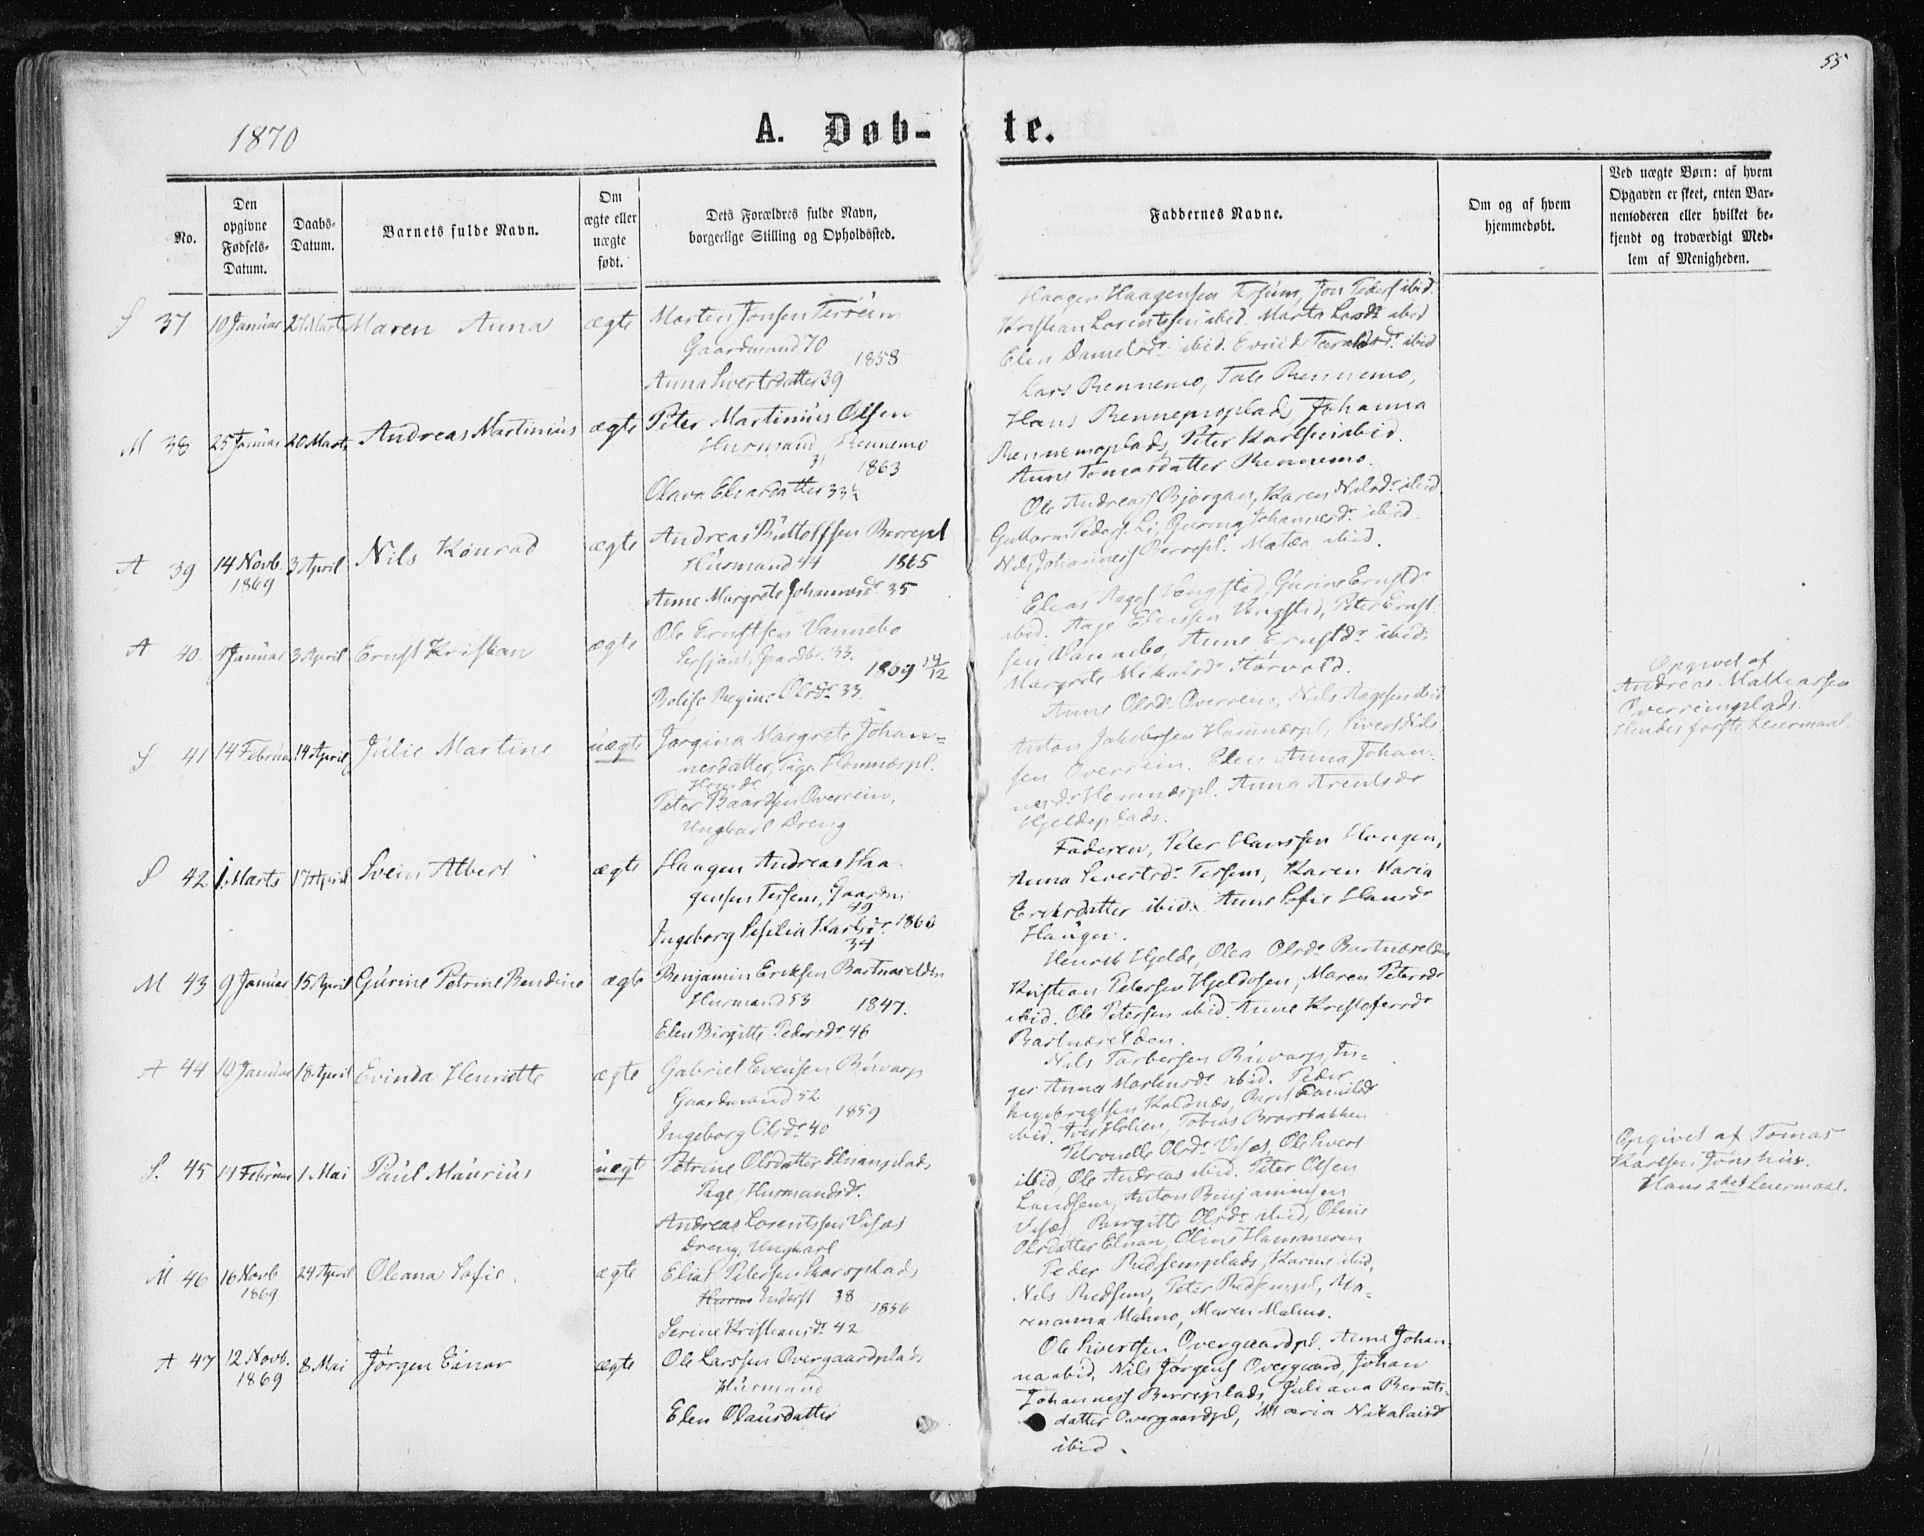 55
1870
A. Døb-te.
No.
Den opgivne Fødsels-Datum.
Daabs-Datum.
Barnets fulde Navn.
Om ægte eller uægte født.
Dets Forældres fulde Navn, borgerlige Stilling og Opholdssted.
Faddernes Navne.
Om og af hvem hjemmedøbt.
Ved uægte Børn: af hvem Opgaven er skeet, enten Barnemoderen eller hvilket bekjendt og troværdigt Medlem af Menigheden.
S 37 10 Januar 27 Marts Maren Anna ægte
Morten Jonsen
Gaardmand 70
1858
Anna Sivertsdatter 39
Haagen Haagensen Jon Peders ibid
Kristian Lorentssen ibid. Marta ibid
Elen Danielsdr ibid. ibid
M 38 25 Januar 20 Marts Andreas Martinius ægte
Peter Martinius Olsen
Husmand, Rennemo
31 1863
Olava Eliasdatter 33½
Lars Rennemo, Rennemo,
Hans Rennemoplads, Johanna
Rennemoplads, Peter Karlsen ibid.
Anne Tomasdatter Rennemo.
A 39 14 Novb. 1869 3 April Nils Konrad ægte
Andreas Berrepl
Husmand 44 1865
Anne Margrete Johannesdr 35
Ole Andreass Bjørgan, Karen Nilsdr ibid.
Guttorm Peders. Li, Johannesdr ibid.
Nils Johanness Berrepl. Matea ibid.
A 40. 4 Januar 3 April Ernst Kristian ægte
Ole Ernstsen Vannebo
Serjant, Gaardbr. 33.
1869 14/12
Bolise Regine Olsdr 33.
Elias Aages Vengstad, Gurine Ernstdr
ibid. Aage Eliassen Vengstad, Peter Ernst
sen Vannebo, Anne Ernstdr ibid.
Margrete Mikalsdr
S 41 14 Februar 14 April Julie Martine uægte
Jørgina Margrete Johan-
nesdatter, Pige Hammerpl.
Husmdr
Peter Baardsen Overrein,
Ungkarl Dreng
Anne Olsdr Overrein, Nils Aagesen ibid
Anton Jakobsen Hammerpl, Sivert Nils
sen Overrein. Elen Anna Johan-
nesdr Hammerpl. Anna Arentsdr
Hjeldeplads.
Opgivet af
Andreas Mattiassen
Overreinplads.
Hendes første Leiermaal.
S 42 1. Marts 17 April Svein Albert ægte
Haagen Andreas Haa-
gensen Gaardm
49
Ingeborg Karlsdr. 1860
34
Faderen, Peter Hanssen Haugen,
Anna Sivertsdr Karen Maria
Eriksdatter ibid. Anne Sofie Hansdr
Haugen.
M 43 9 Januar 15 April Gurine Petrine Bendine ægte
Benjamin Eriksen Bartnæselden
Husmand 53 1847.
Elen Birgitte Pedersdr 46
Henrik Hjelde, Olea Olsdr Bartnæselden
Kristian Petersen Hjeldosen, Maren Petersdr
ibid. Ole Petersen ibid. Anne Kristofersdr
Bartnæselden.
A 44 10 Januar 18 April Evinda Henriette ægte
Gabriel Evensen Buvarp
Gaardmand 52
1859
Ingeborg Olsdr 40
Nils Torbersen Buvarp, In-
ger Anna Mortensdr ibid. Peder
Ingebrigtsen Koldnæs,
ibid. Tobias
S. 45 11 Februar 1 Mai Paul Maurius uægt
Petrine Olsdatter Elnanplads
Pige, Husmandsdr.
Andreas Lorentssen Visæs
Dreng, Ungkarl
Petronelle Olsdr Visæs, Ole Sivert
ibid, Ole Andreas ibid. Peter Olsen
Landsem, Anton Binjaminsen
Visæs Birgitte Olsdr ibid, Oline
Olsdatter Elnan, Oline Hammeren
Opgivet af Tomas
Karlsen Jønshus.
Hans 2det Leiermaal.
M 46 16 Novb 1869 24 April Oleana Sofie ægte
Elias Petersen
Inderst 38
1856
Serine Kristiansdr 42
Peder Redsemplads, Karine ibid,
Nils Redsem, Peter Redsempl, Ma-
renanna Malmo, Maren Malmo.
A 47 12 Novb. 1869 8 Mai Jørgen Einar ægte
Ole Larssen Overgaardplads
Husmand
Elen Olausdatter
Ole Sivertsen Overgaardpl. Anne Johan-
na ibid, Nils Jørgens Overgaard, Johan
Johanness Berreplads, Juliana Bernts-
datter Overgaardpl, Maria Nikolaisdr
ibid.